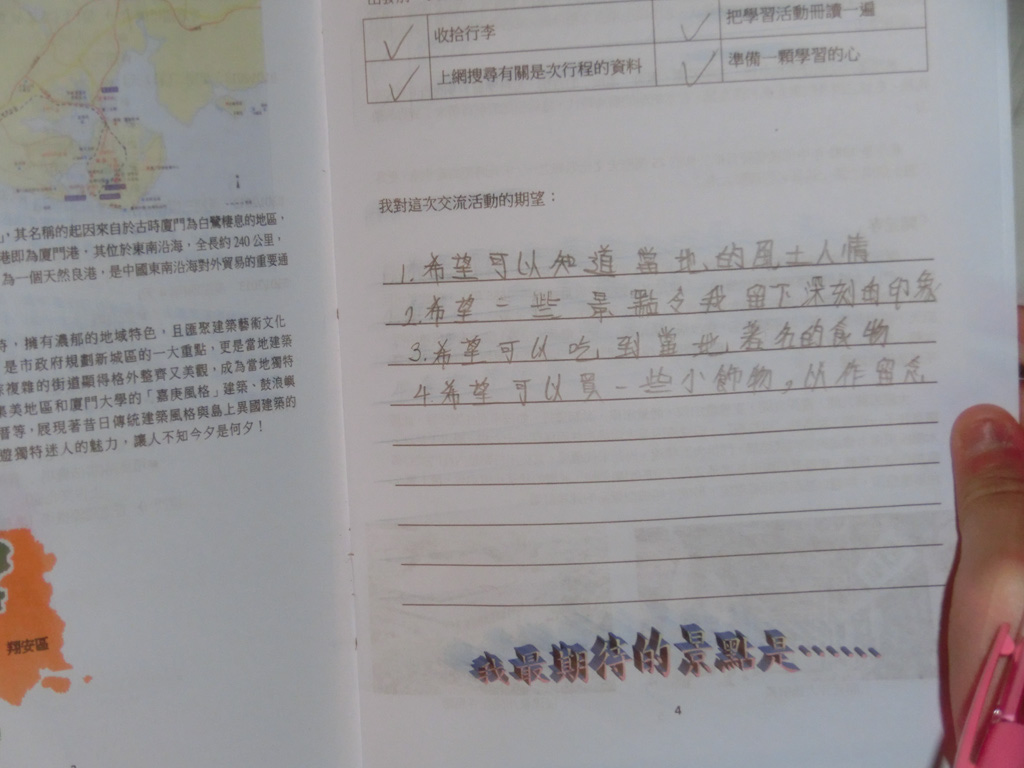 翔安區
其名稱的起因來自於古時廈門為白鷺棲息的地區，
港即為廈門港，其位於東南沿海，全長約240公里，
為一個天然良港，是中國東南沿海對外貿易的重要通
時，擁有濃郁的地域特色，且匯聚建築藝術文化
是市政府規劃新城區的一大重點，更是當地建築
複雜的街道顯得格外整齊又美觀，成為當地獨特
集美地區和廈門大學的「嘉庚風格」建築、鼓浪嶼
厝等，展現著昔日傳統建築風格與島上異國建築的
遊獨特迷人的魅力，讓人不知今夕是何夕！
收拾行李 把學習活動冊讀一遍
上網搜尋有關是次行程的資料 準備一顆學習的心
我對這次交流活動的期望：
1.希望可以知道當地的風土人情
2.希望一些景點令我留下深刻的印象
3.希望可以吃到當地著名的食物
4.希望可以買一些小飾物，以作留念
我最期待的景點是……
4